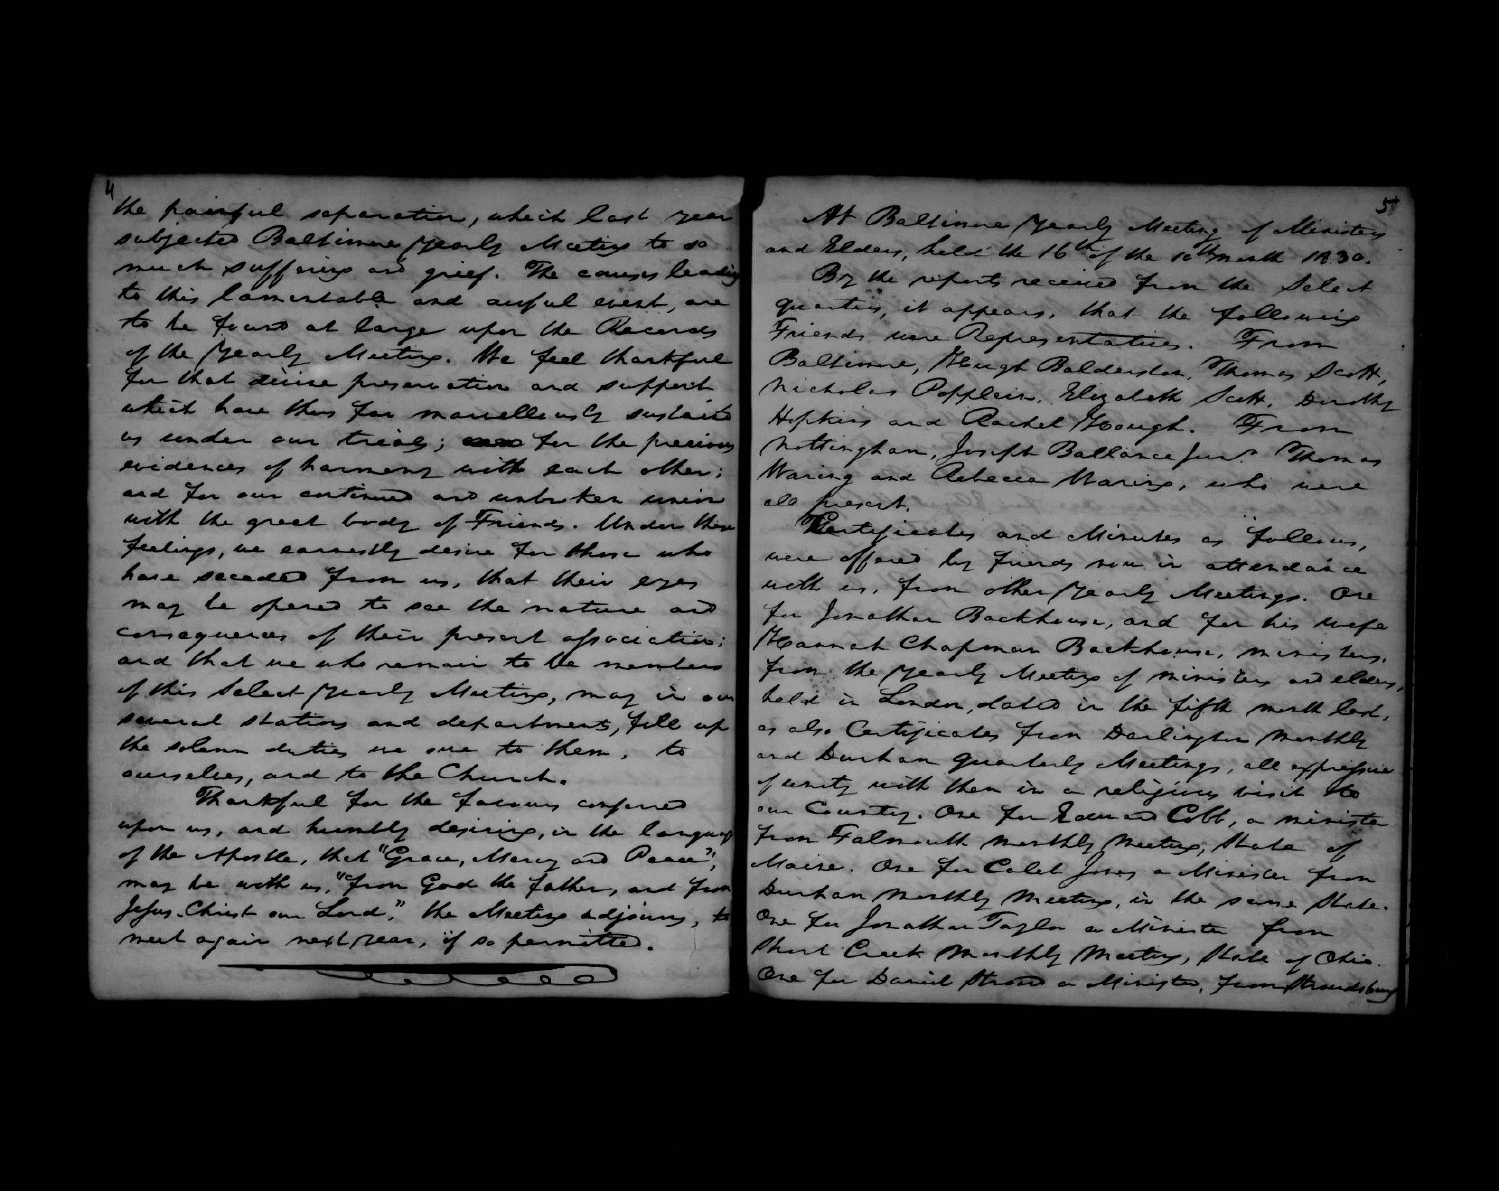 4
the painful separation, which last year
subjected Baltimore Yearly Meeting to so
much suffering and grief. The causes leading
to this lamentable and awful event, are
to be found at large upon the Records
of the Yearly Meeting. We feel thankful
for that divine preservation and support
which have thus far marvellously sustained
us under our trials; for the precious
evidences of harmony with each other;
and for our continued and unbroken union
with the great body of Friends. Under these
feelings, we earnestly desire for those who
have seceded from us, that their eyes
may be opened to see the nature and
consequences of their present association;
and that we who remain to be members
of this Select Yearly Meeting, may in our
several stations and departments, fill up
the solemn duties we owe to them, to
ourselves, and to the Church.
Thankful for the favours conferred
upon us, and humbly desiring, in the language
of the Apostle, that "Grace, Mercy and Peace",
may be with us, "from God the father, and from
Jesus Christ our Lord," the Meeting adjourns, to
meet again next year, if so permitted.
5
At Baltimore Yearly Meeting of Ministers
and Elders, held the 16th of the 10th month 1830.
By the reports received from the Select
quarters, it appears, that the following
Friends were Representatives. From
Baltimore, Hugh Balderston, Thomas Scott,
Nicholas Popplein, Elizabeth Scott, Dorothy
Hopkins and Rachel Hough. From
Nottingham, Joseph Ballance Junr. Thomas
Waring and Rebecca Waring, who were
all present.
Certificates and Minutes as follows,
were offered by friends now in attendance
with us, from other Yearly Meetings. One
for Jonathan Backhouse, and for his wife
Hannah Chapman Backhouse, ministers,
from the Yearly Meeting of ministers and elders,
held in London, dated in the fifth month last,
as also Certificates from Darlington Monthly
and Durham Quarterly Meetings, all expressive
of unity with them in a religious visit to
our Country. One for Edward Cobb, a minister
from Falmouth Monthly Meeting, State of
Maine. One for Caleb Jones a Minister from
Durham Monthly Meeting, in the same State.
One for Jonathan Taylor a Minister from
Short Creek Monthly Meeting, State of Ohio.
One for Daniel Stroud a Minister, from Stroudsburg